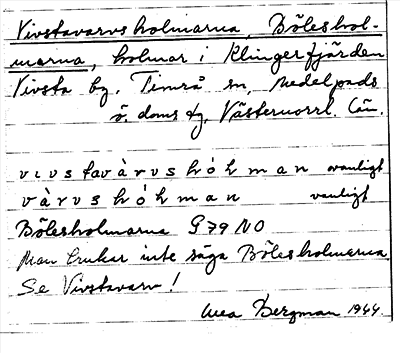 Vivstavarvsholmarna, Böleshol-
marna, holmar i Klingerfjärden
Vivsta by. Timrå sn, Medelpads
ö. doms tg, Västernorrl. län.
vivstavàrvshòḥman ovanligt
vàrvshòḥman vanligt
Bölesholmarna G 79 NO
Man brukar inte säga Bölesholmarna
Se Vivstavarv!
Bergman 1944.